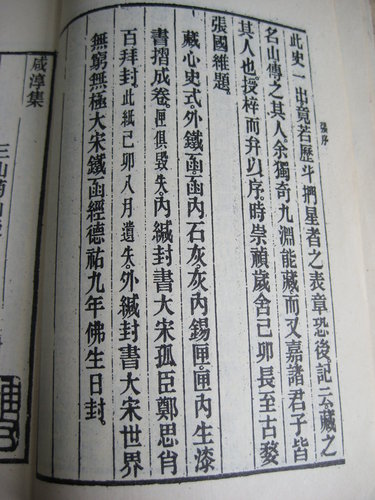 張序
此史一出竟若歷斗捫星者之表章恐後記云藏之
名山傳之其人余獨奇九淵能藏而又嘉諸君子皆
其人也授梓而弁以序時崇禎歲舍己卯長至古婺
張國維題
藏心史式外鐵函函內石灰灰內錫匣匣內生漆
書摺成卷匣俱毀失內緘封書大宋孤臣鄭思肖
百拜封此紙己卯八月遺失外緘封書大宋世界
無窮無極大宋鐵函經德祐九年佛生日封
咸淳集